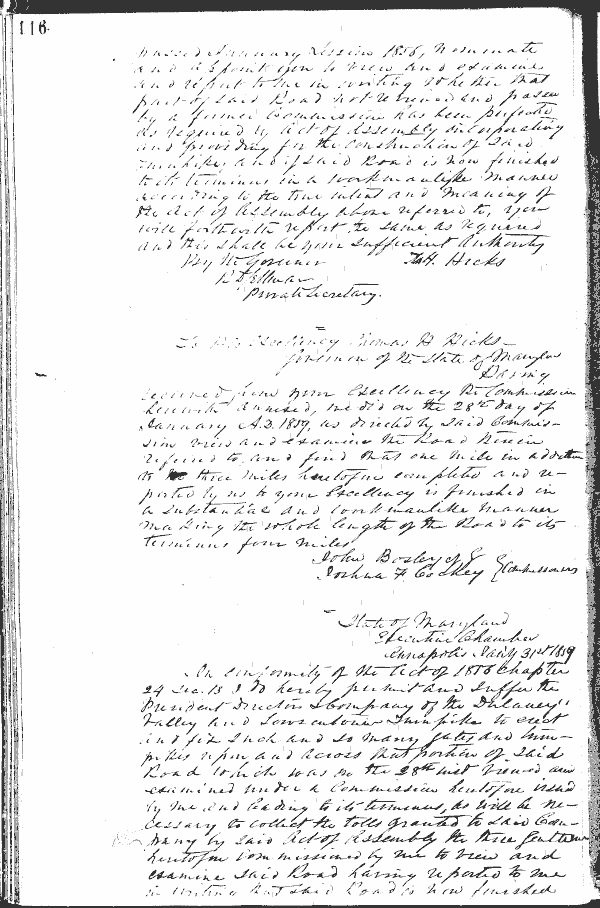 116
passed January Session 1856, nominate
and appoint you to view and examine
and report to me in writing whether that
part of said Road not reviewed and passed
by a former Commission has been perfected
as required by Act of Assembly incorporating
and providing for the construction of said
turnpike, and if said Road is now finished
to its terminus in a workmanlike manner
according to the true intent and meaning of
the Act of Assembly above referred to, you
will forthwith report the same as required
and this shall be your sufficient authority
By the Governor Tho H. Hicks
Private Secretary.
To His Excellency Thomas H Hicks
Governor of the State of Maryland
Having
received from your Excellency the Commission
herewith annexed, we did on the 28th day of
January A.D. 1859, as directed by said Commis-
sion view and examine the Road therein
referred to, and find that one mile in addition
to the three miles heretofore completed and re-
ported by us to your Excellency is finished in
a substantial and workmanlike manner
making the whole length of the Road to its
terminus four miles
John Bosley of
Joshua F Cockey Commissioners
State of Maryland
Executive Chamber
Annapolis Jany 31st 1859
In conformity of the Act of 1856 Chapter
24 Sec. 13 I do hereby permit and suffer the
President Directors & Company of the Dulaneys
Valley and Towsontown Turnpike to erect
and fix such and so many gates and turn-
pikes upon and across that portion of said
Road which was on the 28th inst viewed and
examined under a Commission heretofore issued
by me and leading to its terminus, as will be ne-
cessary to collect the tolls granted to said Com-
pany by said Act of Assembly the three Gentlemen
heretofore commissioned by me to view and
examine said Road having reported to me
in writing that said Road is now finished